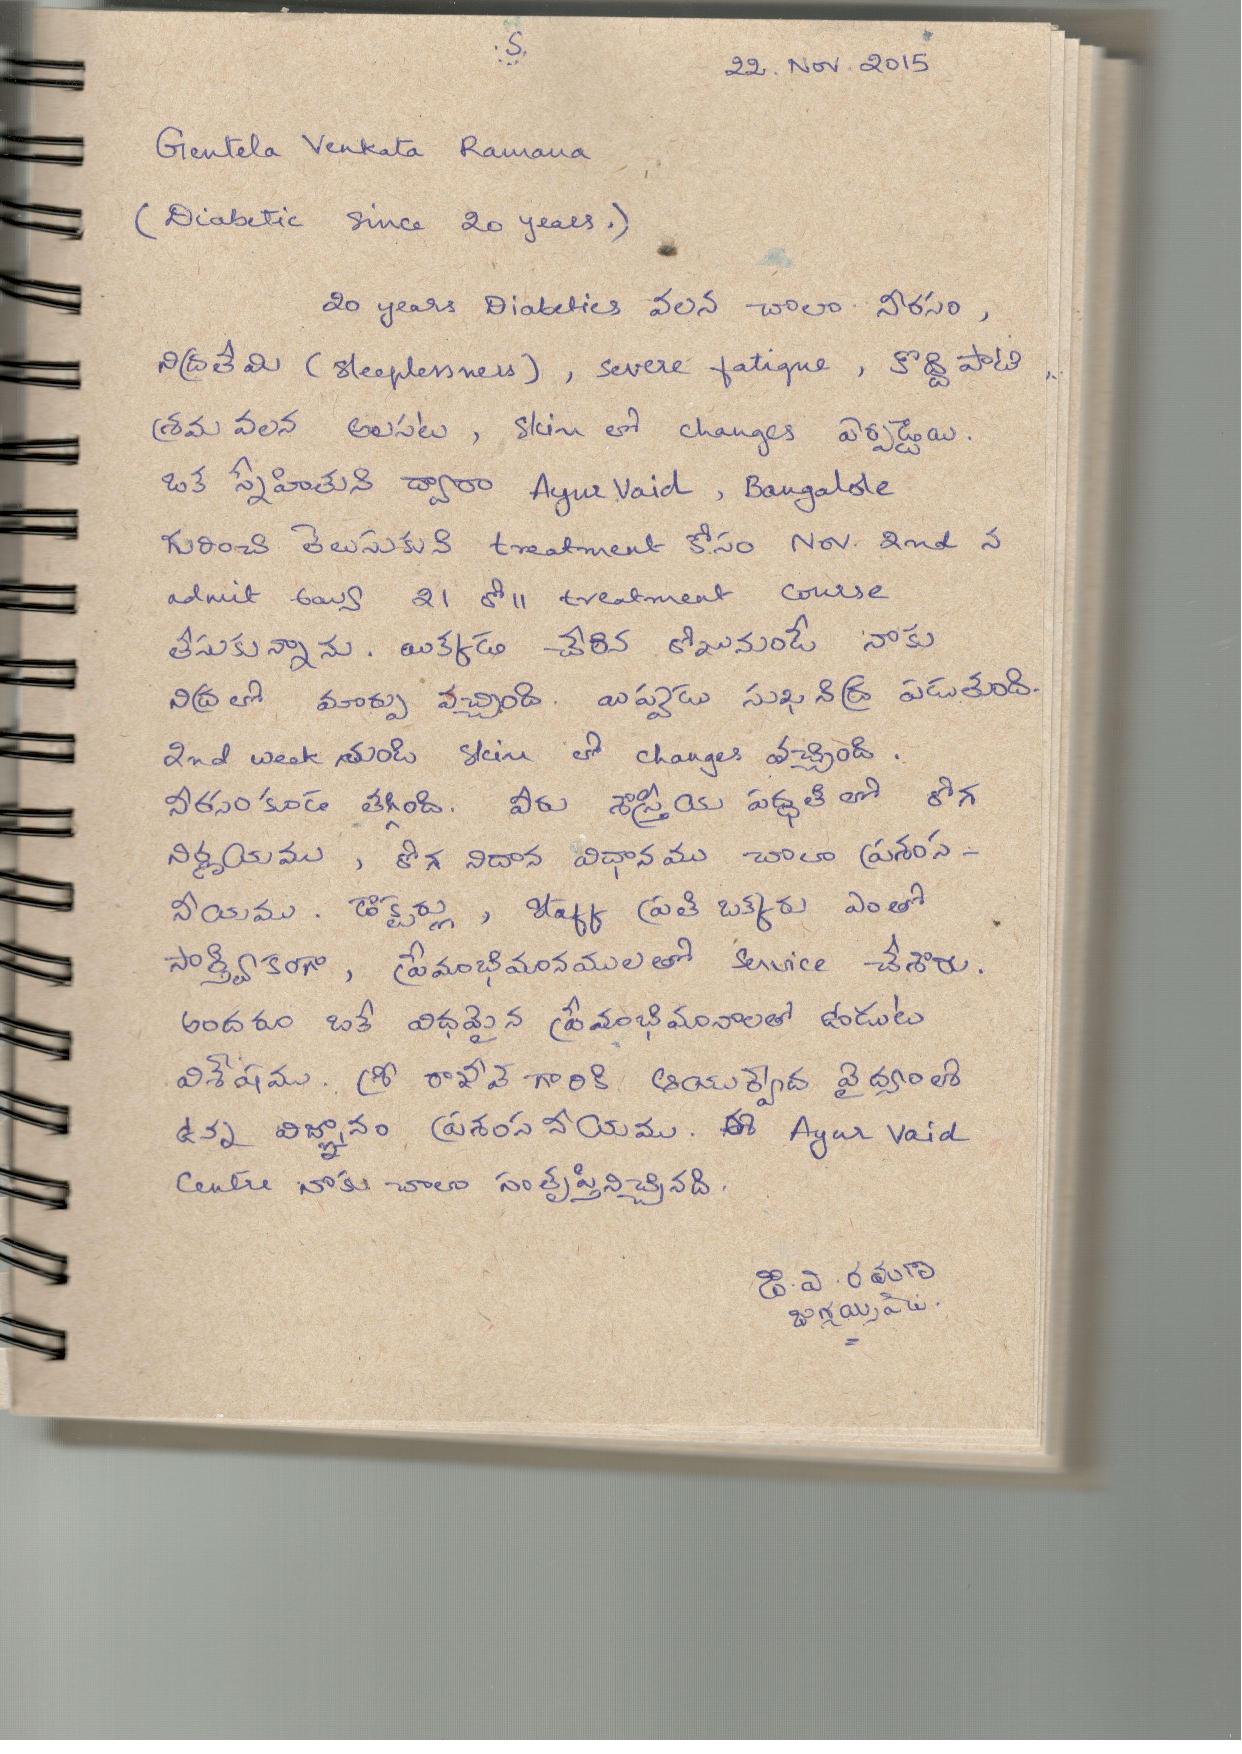 22. Nov. 2015
Gentela Venkata Ramana
(Diabetic since 20 years.)
20 years Diabetics వలన చాలా నీరసం,
నిద్రలేమి (sleeplessness), severe fatigue, కొద్ది పాటి
శ్రమ వలన అలసట, skin లో changes ఏర్పడ్డాయి.
ఒక స్నేహితుని ద్వారా Ayur Vaid, Bangalore
గురించి తెలుసుకుని treatment కోసం Nov. 2nd న
admit అయ్యి 21 రో॥ treatment course
తీసుకున్నాను. యిక్కడ చేరిన రోజునుండే నాకు
నిద్రలో మార్పు వచ్చింది. యిప్పుడు సుఖనిద్ర పడుతుంది.
2nd weak నుండి skin లో changes వచ్చింది.
నీరసం కూడా తగ్గింది. వీరు శాస్త్రీయ పద్ధతిలో రోగ
నిర్ణయము, రోగ నిదాన విధానము చాలా ప్రశంస-
నీయము. డాక్టర్లు, staff ప్రతి ఒక్కరు ఎంతో
సాత్త్వికంగా, ప్రేమాభిమానములతో service చేశారు.
అందరూ ఒకే విధమైన ప్రేమాభిమానాలతో ఉండుట
విశేషము. శ్రీ గారికి ఆయుర్వేద వైద్యంలో
ఉన్న విజ్ఞానం ప్రశంసనీయము. ఈ Ayur Vaid
Centre నాకు చాలా సంతృప్తినిచ్చినది.
జి.వి. రమణ